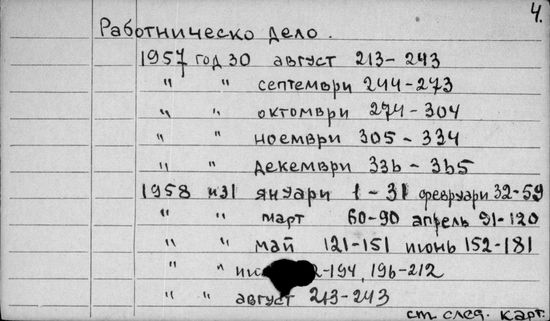 4.
Работническо дело.
1957 год 30 август 213-243
" " септември 244-273
" " октомври 274-304
" " ноември 305-334
" " декември 336-365
1958 н31 януари 1-31 февруари 32-59
" " март 60-90 апрель 91-120
" " май 121-151 июнь 152-181
" " -194, 196-212
" " август 213-243
ст. след. карт.